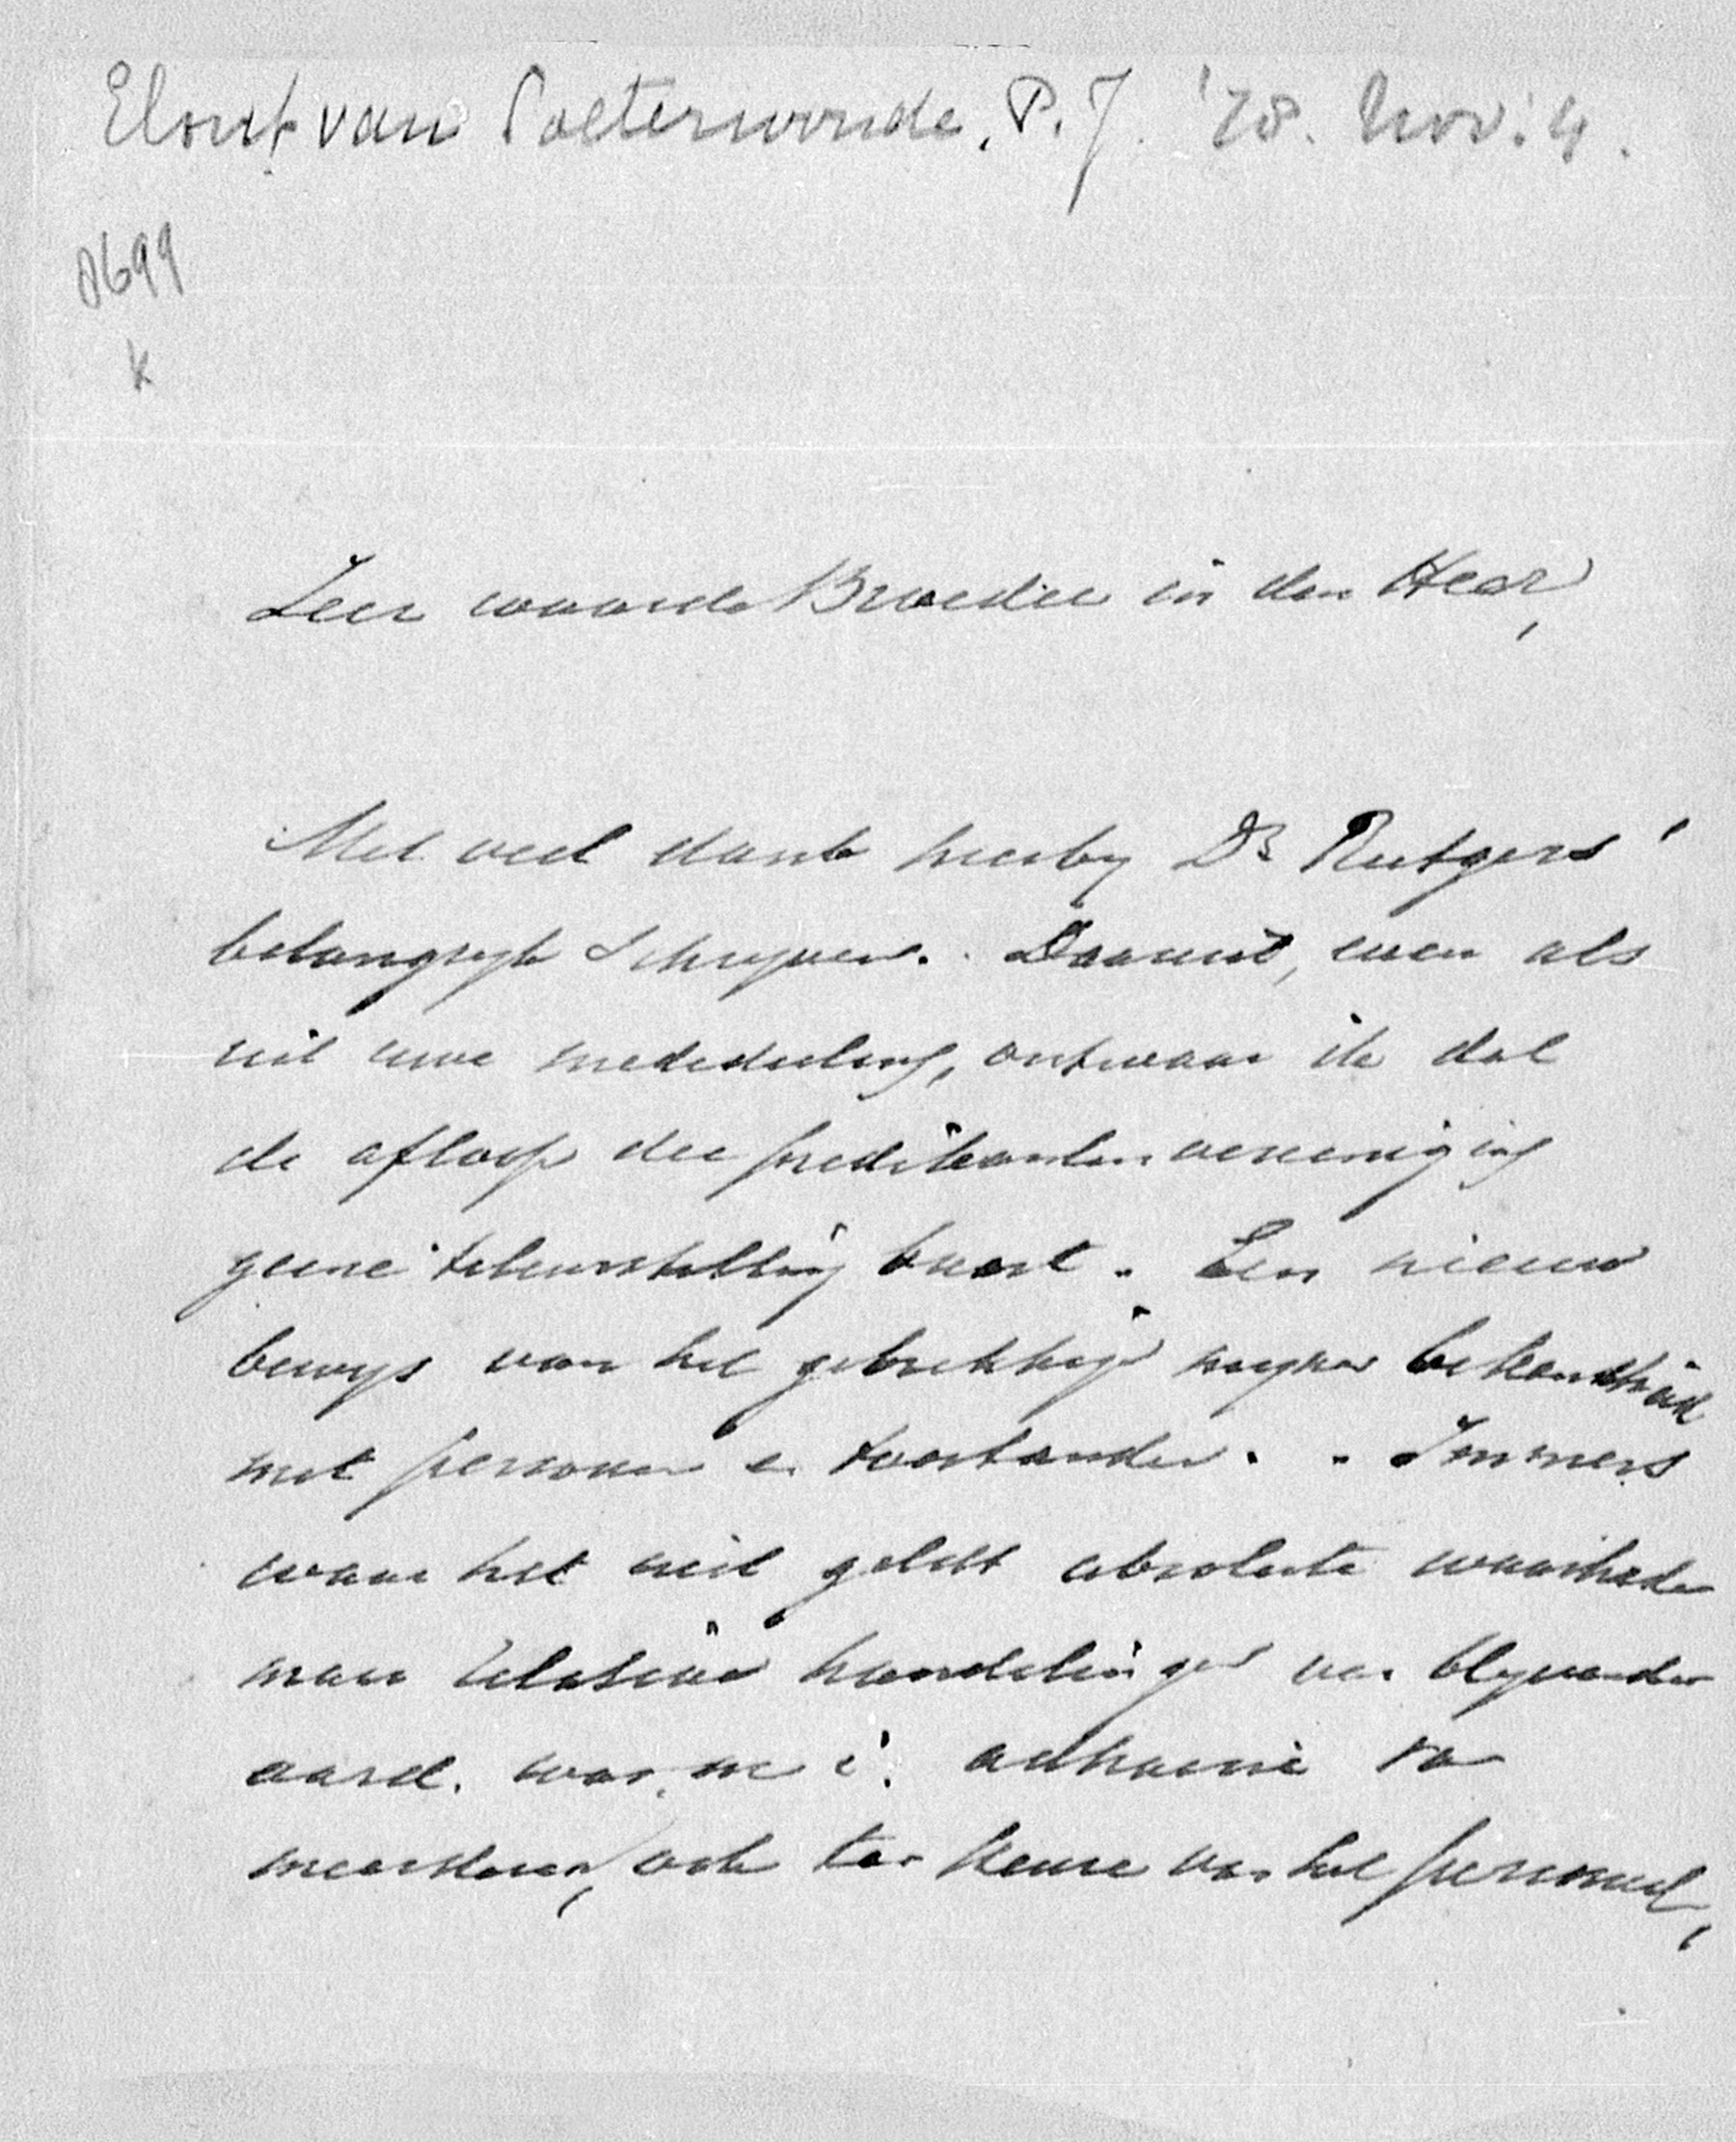 Elout van Soeterwoude, P. J. '78. Nov. 4.
0699
k
Zeer waarde Broeder in den Heer,
Met veel dank hierby Dr Rutgers'
belangryk schryven. Daaruit, even als
uit uwe mededeeling, ontwaar ik dat
de afloop der predikanten vereeniging
geene teleurstelling baart. Een nieuw
bewys van het gebrekkige myner bekendheid
met personen en toestanden. Immers
waar het niet geldt absolute waarheden
maar relatieve handelingen van blyvenden
aard. was m i.
meerderen, ook ter keuze van het personeel,